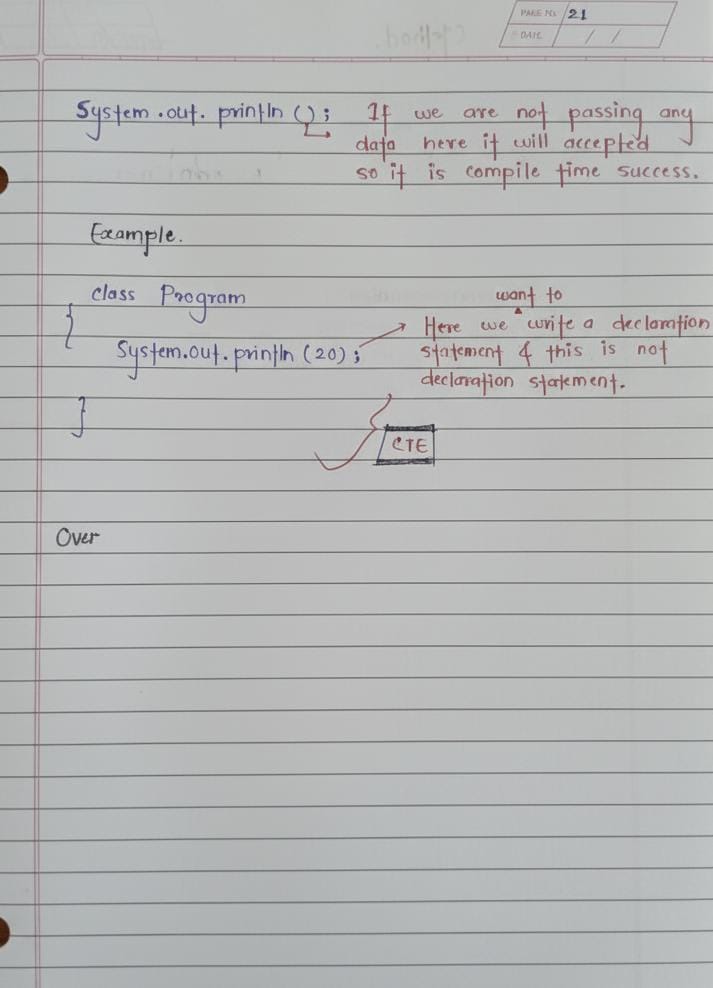 PAGE No. 21
DATE / /
System.out.println(); If we are not passing any
data here it will accepted
so it is compile time success.
Example.
class Program
want to
{ Here we ^ write a declaration
System.out.println(20); statement & this is not
declaration statement.
}
CTE
Over